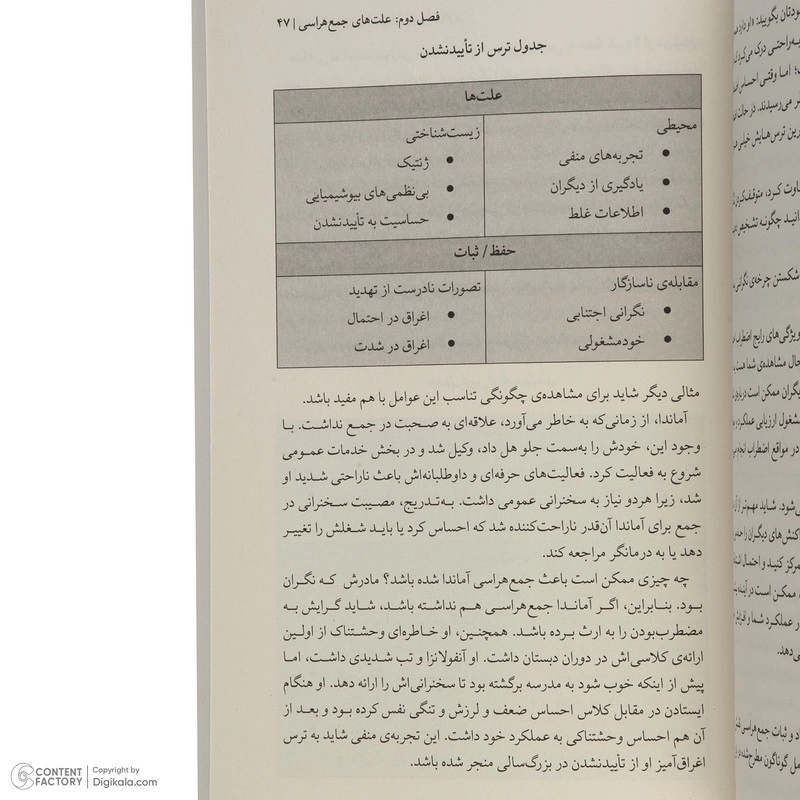 فصل دوم: علت‌های جمع‌هراسی | ۴۷
جدول ترس از تأییدنشدن
علت‌ها
محیطی
• تجربه‌های منفی
• یادگیری از دیگران
• اطلاعات غلط
زیست‌شناختی
• ژنتیک
• بی‌نظمی‌های بیوشیمیایی
• حساسیت به تأییدنشدن
حفظ / ثبات
مقابله‌ی ناسازگار
• نگرانی اجتنابی
• خودمشغولی
تصورات نادرست از تهدید
• اغراق در احتمال
• اغراق در شدت
مثالی دیگر شاید برای مشاهده‌ی چگونگی تناسب این عوامل با هم مفید باشد.
آماندا، از زمانی‌که به خاطر می‌آورد، علاقه‌ای به صحبت در جمع نداشت. با
وجود این، خودش را به‌سمت جلو هل داد، وکیل شد و در بخش خدمات عمومی
شروع به فعالیت کرد. فعالیت‌های حرفه‌ای و داوطلبانه‌اش باعث ناراحتی شدید او
شد، زیرا هردو نیاز به سخنرانی عمومی داشت. به‌تدریج، مصیبت سخنرانی در
جمع برای آماندا آن‌قدر ناراحت‌کننده شد که احساس کرد یا باید شغلش را تغییر
دهد یا به درمانگر مراجعه کند.
چه چیزی ممکن است باعث جمع‌هراسی آماندا شده باشد؟ مادرش که نگران
بود. بنابراین، اگر آماندا جمع‌هراسی هم نداشته باشد، شاید گرایش به
مضطرب‌بودن را به ارث برده باشد. همچنین، او خاطره‌ای وحشتناک از اولین
ارائه‌ی کلاسی‌اش در دوران دبستان داشت. او آنفولانزا و تب شدیدی داشت، اما
پیش از اینکه خوب شود به مدرسه برگشته بود تا سخنرانی‌اش را ارائه دهد. او هنگام
ایستادن در مقابل کلاس احساس ضعف و لرزش و تنگی نفس کرده بود و بعد از
آن هم احساس وحشتناکی به عملکرد خود داشت. این تجربه‌ی منفی شاید به ترس
اغراق‌آمیز او از تأییدنشدن در بزرگ‌سالی منجر شده باشد.
CONTENT FACTORY
Copyright by
Digikala.com